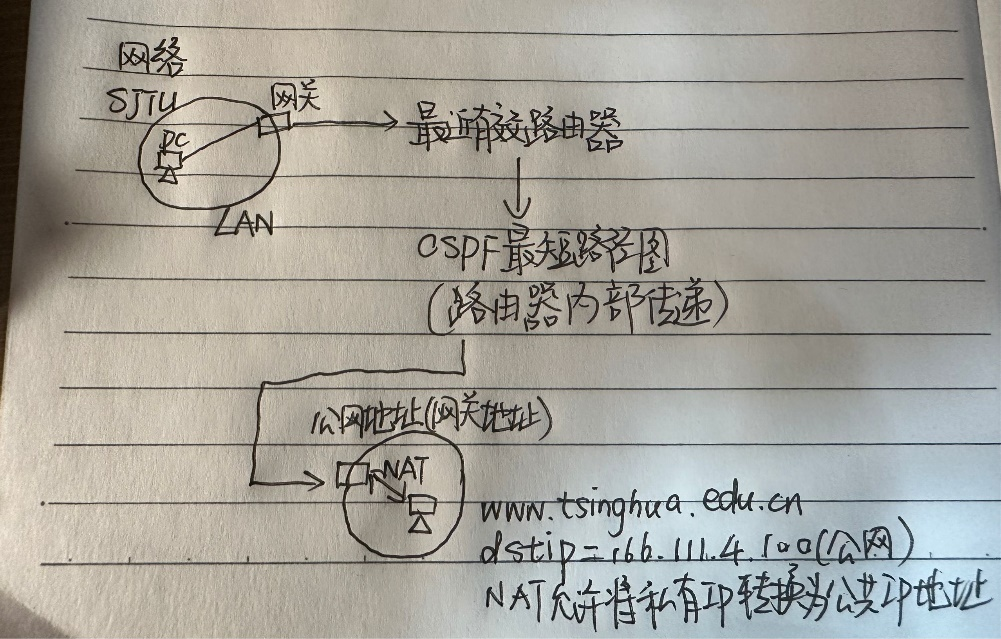 网络
SJTU
网关
PC
最近有效路由器
LAN
OSPF最短路径图
(路由器内部传递)
公网地址(网关地址)
NAT
www.tsinghua.edu.cn
dstip=166.111.4.100(公网)
NAT允许将私有IP转换为公共IP地址